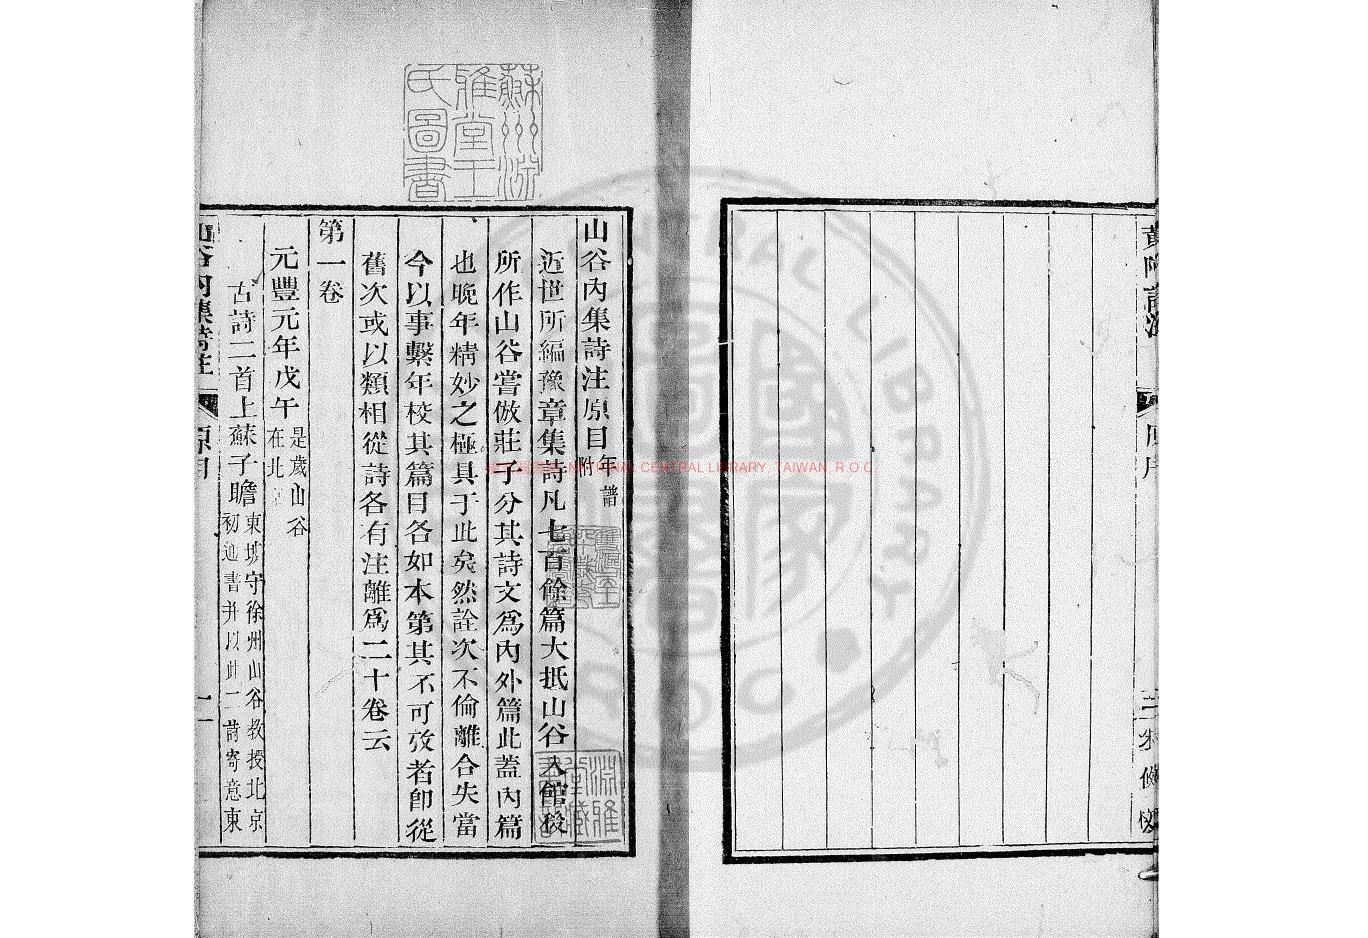 山谷內集詩注原目年譜附
近世所編豫章集詩凡七百餘篇大抵山谷入館後
所作山谷嘗倣莊子分其詩文爲內外篇此蓋內篇
也晚年精妙之極具于此矣然詮次不倫離合失當
今以事繫年校其篇目各如本第其不可攷者卽從
舊次或以類相從詩各有注離爲二十卷云
第一卷
元豐元年戊午是歲山谷在北京
古詩二首上蘇子瞻東坡守徐州山谷敎授北京
初通書幷以此二詩寄意東
山谷內集詩注
原目
一
蘇州淵雅堂王氏圖書
NATIONAL CENTRAL LIBRARY, TAIWAN, R.O.C